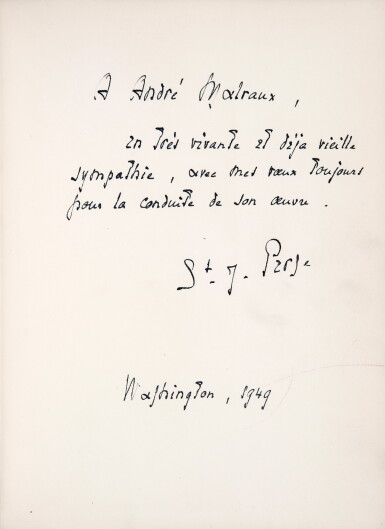 A André Malraux,
en très vivante et déja vieille
sympathie, avec mes vœux toujours
pour la conduite de son œuvre.
St. J. Perse
Washington, 1949